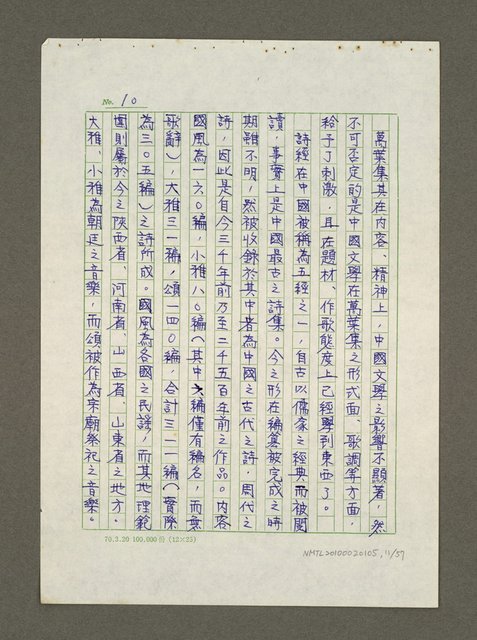 No. 10
萬葉集其在内容、精神上，中國文學之影響不顯著，然
不可否定的是中國文學在萬葉集之形式面、歌調等方面，
給予了刺激，且在題材、作歌態度上已經學到東西了。
詩經在中國被稱為五經之一，自古以儒家之經典而被閱
讀，事實上是中國最古之詩集。今之形在編纂被完成之時
期雖不明，然被收錄於其中者為中國之古代之詩，周代之
詩，因此是自今三千年前乃至二千五百年前之作品。内容
國風為一六〇編，小雅八〇編（其中六編僅有編名，而無
歌辭），大雅三一編，頌一四〇編，合計三一一編（實際
為三〇五編）之詩所成。國風為各國之民謠，而其地理範
圍則屬於今之陝西省、河南省、山西省、山東省之地方。
大雅、小雅為朝廷之音樂，而頌被作為宗廟祭祀之音樂。
70.3.20 100,000份 (12×25)
NMTL20100020105, 11/57